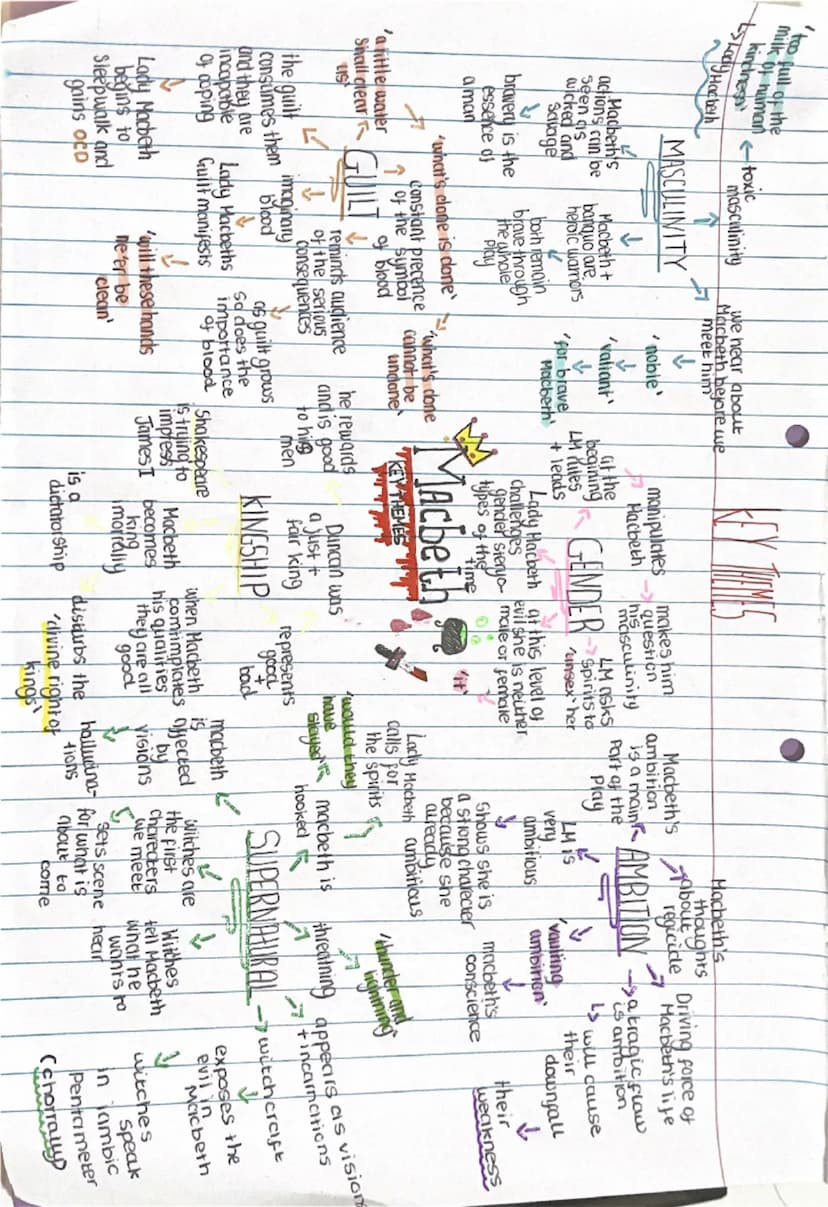 KEY THEMES
'too
full of the
milk of human
kindness'
↳ Lady Macbeth
← toxic
masculinity
MASCULINITY
Macbeth's
actions can be
seen as
wicked and
savage
bravery is the
essence of
a man
Macbeth +
banquo are
heroic warriors
both remain
brave through
the whole
play
we hear about
Macbeth before we
meet him
'noble'
'valiant'
'for brave
Macbeth'
GENDER
at the
begining
LM rules
+ leads
manipulates
Macbeth
makes him
question
his
masculinity
LM asks
spirits to
'unsex' her
Lady Macbeth
challenges
gender steryo-
types of the
time
at this level of
evil she is neither
male or female
'it'
AMBITION
Macbeth's
ambition
is a main
part of the
play
Macbeth's
thoughts
about
regicide
Driving force of
Macbeth's life
→ a tragic flaw
is ambition
↳ will cause
their
downfall
their
weakness
LM is
very
ambitious
shows she is
a strong charecter
because she
already
ambitious
'vaulting
ambition'
macbeth's
conscience
Lady Macbeth
calls for
the spirits
Macbeth
KEY THEMES
GUILT
'a little water
shall clear
us'
'what's done is done'
'what's done
cannot be
undone'
constant precence
of the symbol
of blood
reminds audience
of the serious
consequences
the guilt
consumes them
and they are
incapable
of coping
Lady Macbeth
begins to
sleepwalk and
gains OCD
imaginary
blood
Lady Macbeths
Guilt manifests
'will these hands
ne'er be
clean'
as guilt grows
so does the
importance
of blood
KINGSHIP
he rewards
and is good
to his
men
Duncan was
a just +
fair king
represents
good
+
bad
Shakespeare
is trying to
impress
James I
Macbeth
becomes
king
morally
is a
dictatorship
when Macbeth
comtimplates
his qualities
they are all
good
disturbs the
'divine right of
kings'
SUPERNATURAL
'would they
have
stayed'
macbeth is
hooked
threathing
'thunder and
lightning'
appears as visions
+ incarnations
→ witchcraft
exposes the
evil in
Macbeth
witches
speak
in iambic
pentameter
macbeth
is
affected
by
visions
hallucina-
tions
Witches are
the first
charecters
we meet
sets scene
for what is
about to
come
Witches
tell Macbeth
what he
wants to
hear